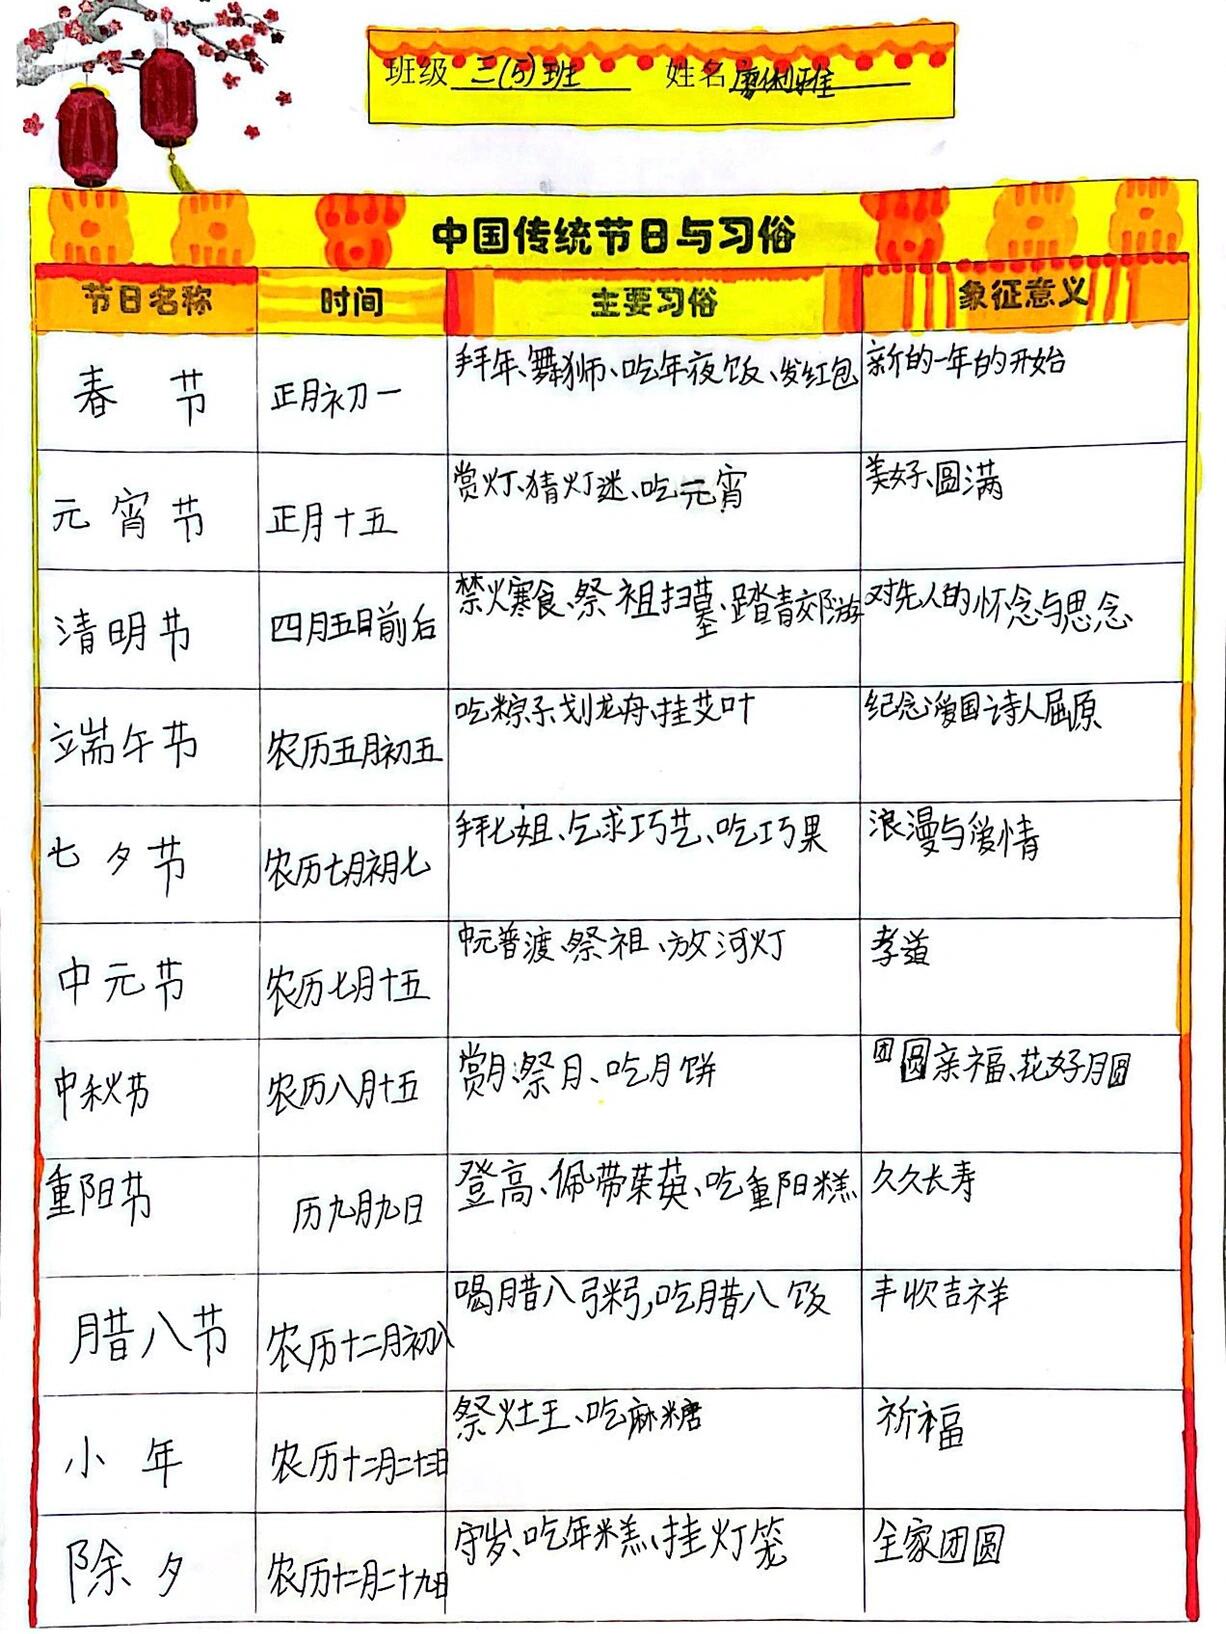 班级 三(5)班 姓名
中国传统节日与习俗
节日名称 时间 主要习俗 象征意义
春节 正月初一 拜年、舞狮、吃年夜饭、发红包 新的一年的开始
元宵节 正月十五 赏灯、猜灯迷、吃元宵 美好、圆满
清明节 四月五日前后 禁火寒食、祭祖扫墓、踏青郊游 对先人的怀念与思念
端午节 农历五月初五 吃粽子、划龙舟、挂艾叶 纪念爱国诗人屈原
七夕节 农历七月初七 拜七姐、乞求巧艺、吃巧果 浪漫与爱情
中元节 农历七月十五 中元普渡、祭祖、放河灯 孝道
中秋节 农历八月十五 赏月、祭月、吃月饼 团圆亲福、花好月圆
重阳节 历九月九日 登高、佩带茱萸、吃重阳糕 久久长寿
腊八节 农历十二月初八 喝腊八粥,吃腊八饭 丰收吉祥
小年 农历十二月二十三日 祭灶王、吃麻糖 祈福
除夕 农历十二月二十九日 守岁、吃年糕、挂灯笼 全家团圆